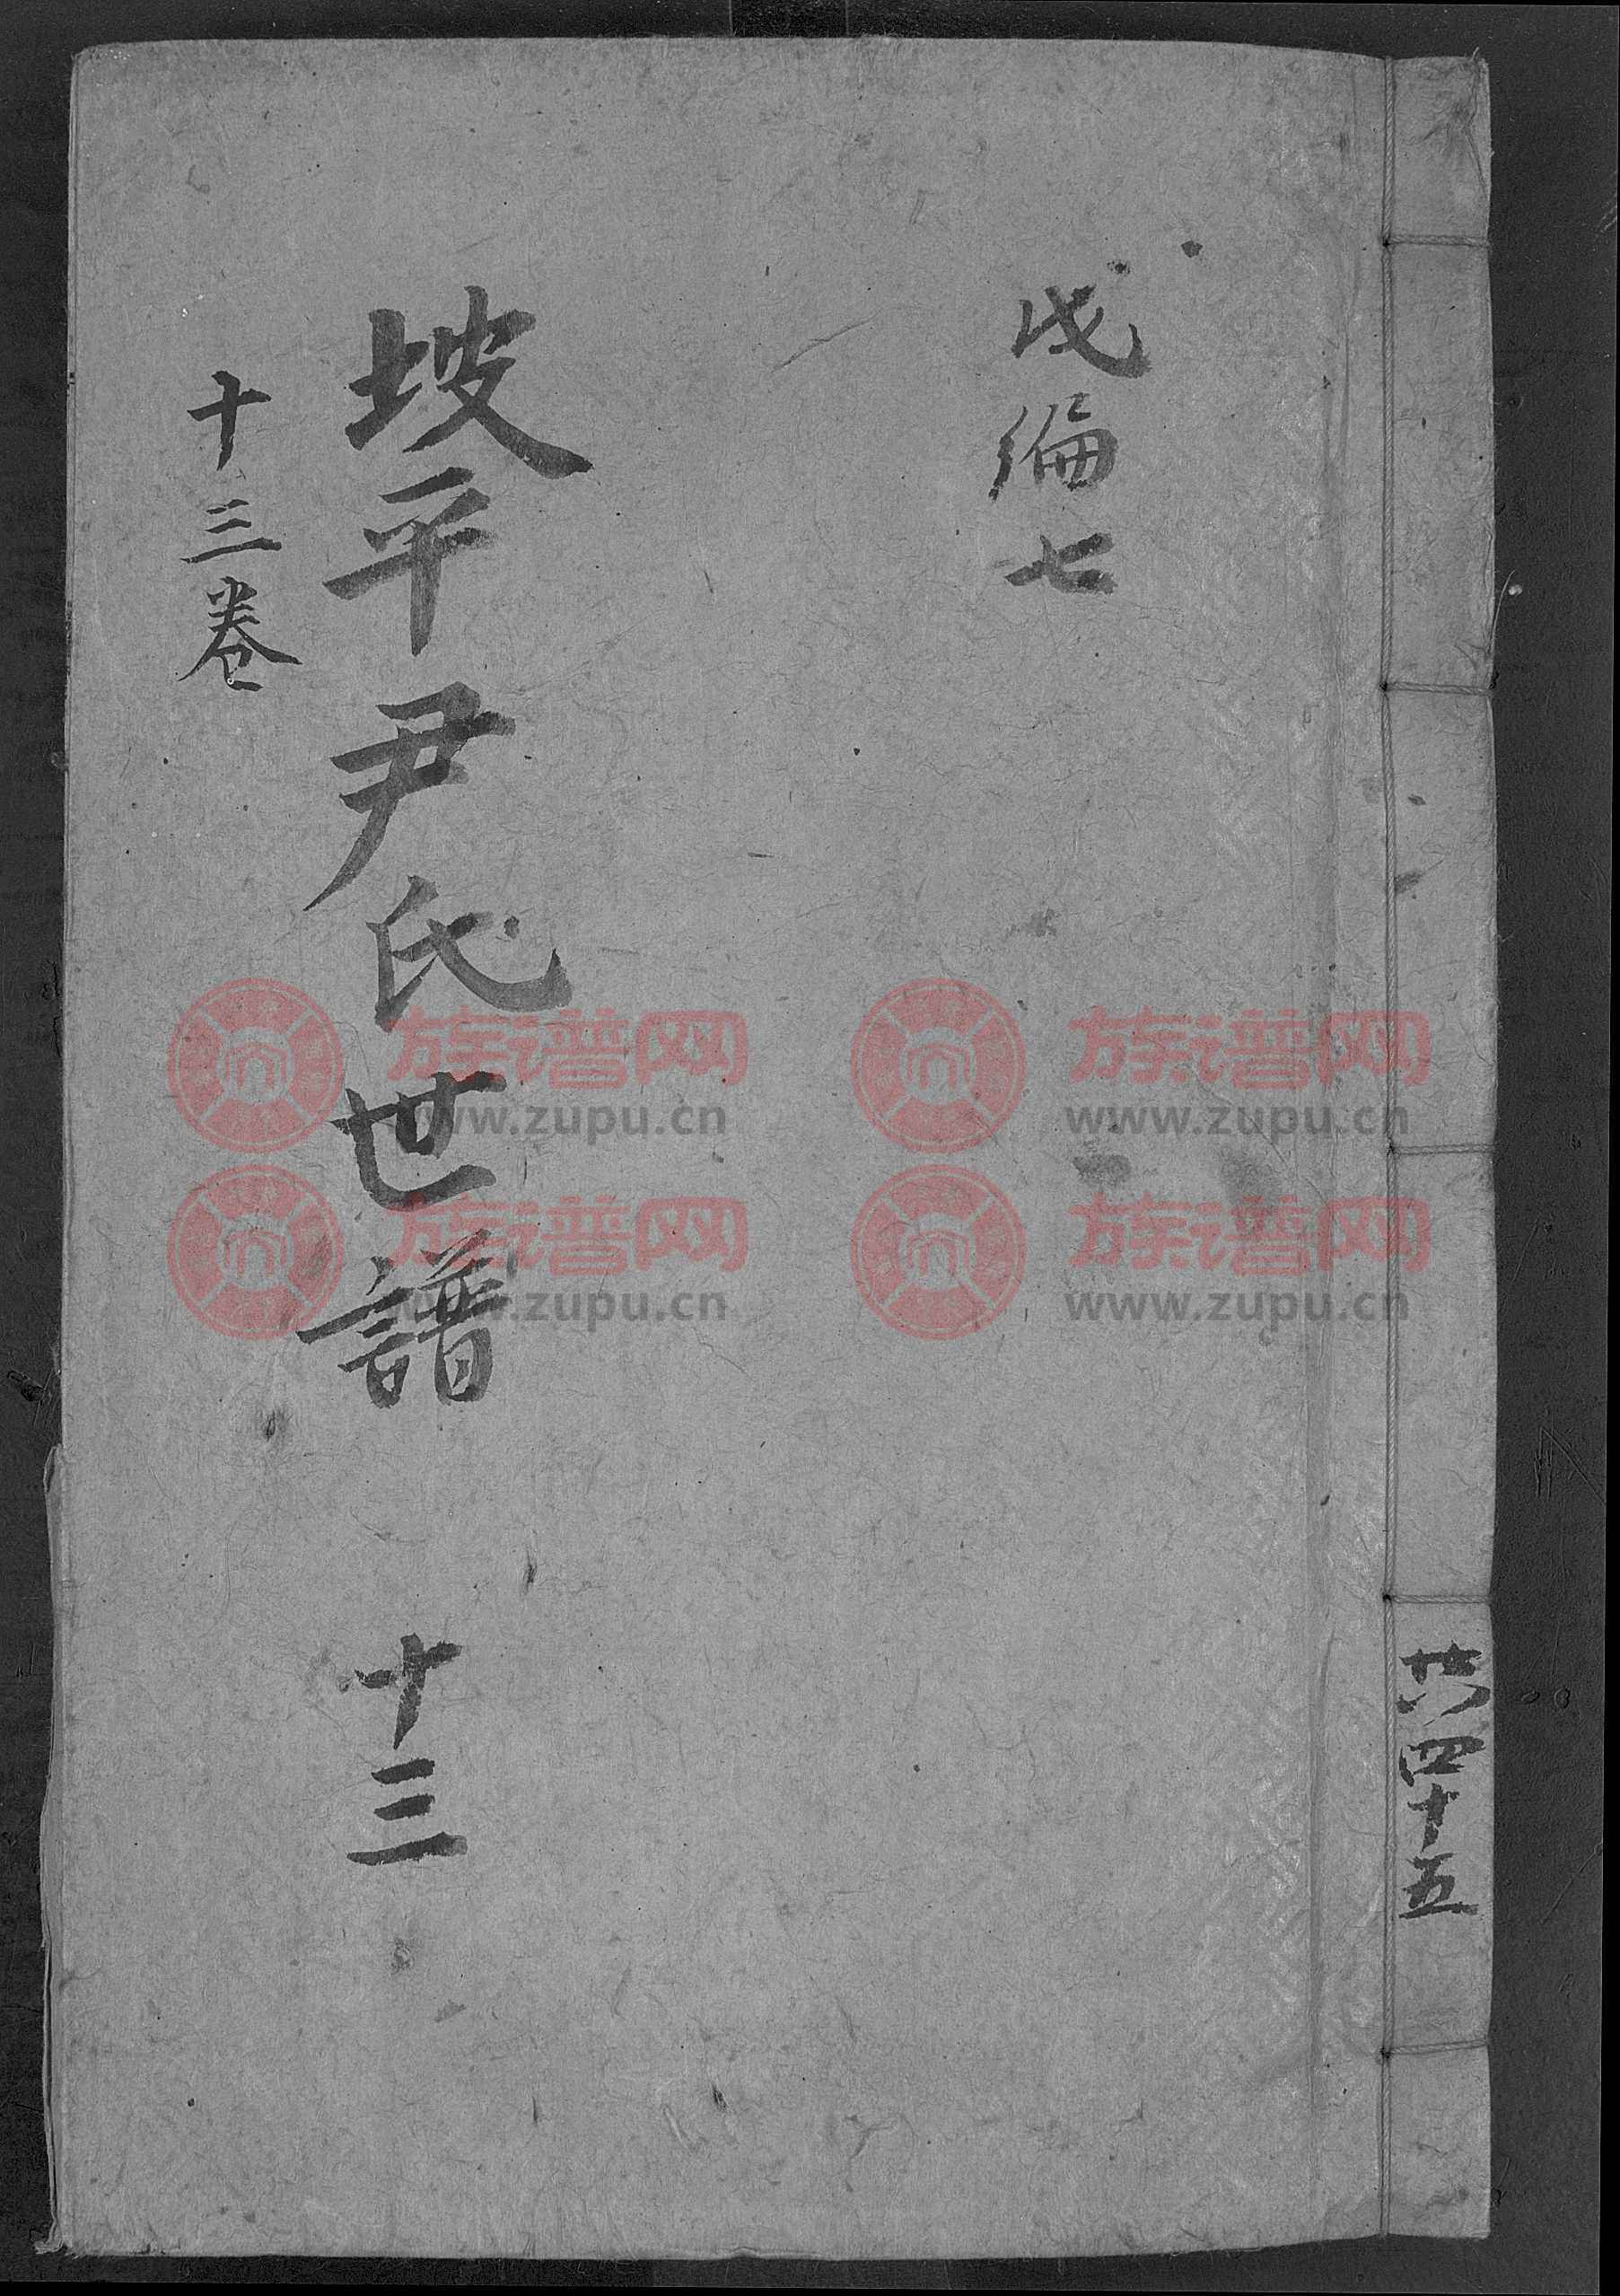 戊編七
坡平尹氏世譜 十三
十三卷
共四十五
族谱网
www.zupu.cn
族谱网
www.zupu.cn
族谱网
www.zupu.cn
族谱网
www.zupu.cn